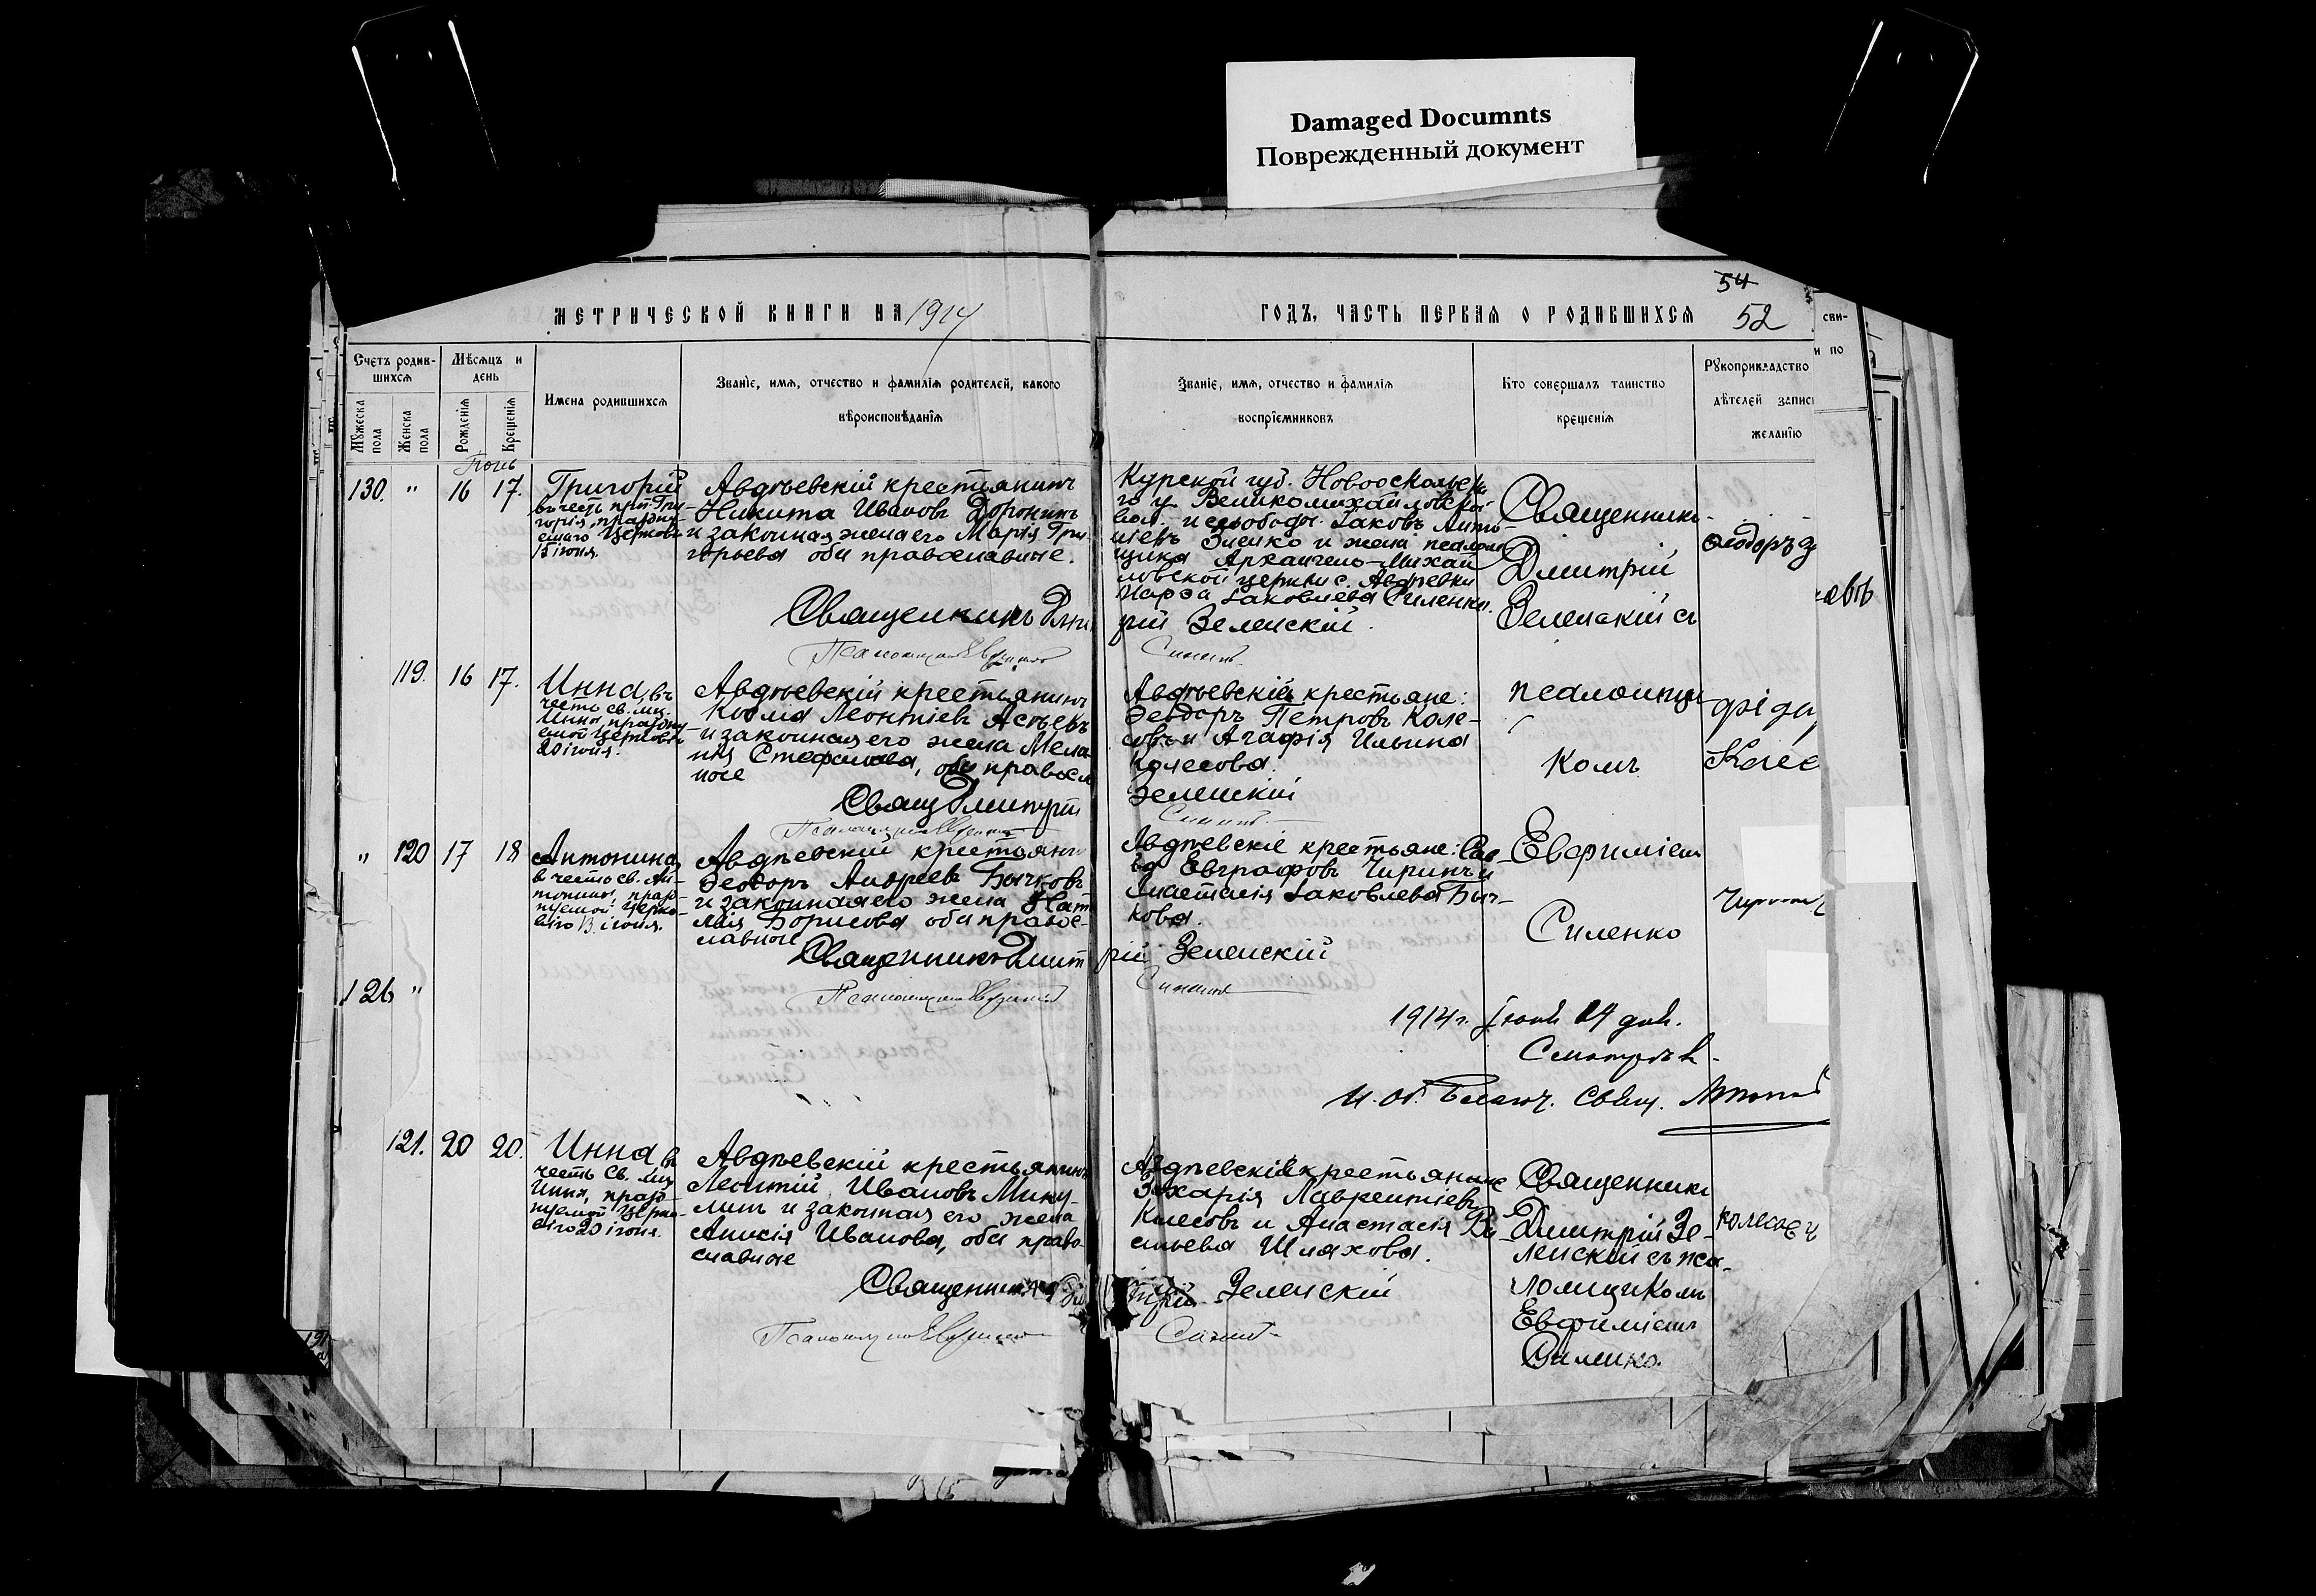 Damaged Documnts
Поврежденный документ
54
МЕТРИЧЕСКОЙ КНИГИ НА 1914
ГОДЪ, ЧАСТЬ ПЕРВАЯ О РОДИВШИХСЯ
52
сви-
и по
Счетъ родив-
шихся
Мѣсяцъ и
день
Мужеска
пола
Женска
пола
Рожденія
Крещенія
Имена родившихся
Званіе, имя, отчество и фамилія родителей, какого
вѣроисповѣданія
Званіе, имя, отчество и фамилія
воспріемниковъ
Кто совершалъ таинство
крещенія
Рукоприкладство
дѣтелей записи
желанію
Іюнь
130. " 16 17.
Григорій
въ честь
горія, праздну-
емаго Церковью
15 іюня.
Авдѣевскій крестьянинъ
Никита Ивановъ Доронинъ
и законная жена его Марія Гри-
горьева оба православные.
Священникъ Дми
Курской губ. Новооскольска-
го у. Великомихайловской
вол. и слободы Іаковъ
и жена псалом-
щика Архангело-Михай
ловской церкви с. Авдѣевки
Іаковлева Силенко.
рій Зеленскій.
Священникъ
Дмитрій
Зеленскій съ
Ѳеодоръ
авъ
119. 16 17.
Инна, въ
честь св. мц.
Инны, праздну-
емой Церковью
20 іюня.
Авдѣевскій крестьянинъ
Косма Леонтіевъ
и законная его жена Мела
нія Стефанова, оба правосл
ные
Свящ Дмитрій
Авдѣевскіе крестьяне:
Ѳеодоръ Петровъ Коле-
совъ и Агафія Ильина
Колесова.
Зеленскій
псаломщи
комъ
" 120 17 18
Антонина
въ честь св. Ан-
тонины, празд-
нуемой Церко-
вію 13 іюня.
Авдѣевскій крестьянинъ
Ѳеодоръ Андреевъ Бычковъ
и законная его жена Ната
лія Борисова оба право-
славные
Священникъ Дмит
Авдѣевскіе крестьяне: Сав-
ва Евграфовъ Чиринъ и
Анастасія Іаковлева Быч-
кова
рій Зеленскій
Евфиміемъ
Силенко
126 "
1914 г. Іюня 24 дня.
Смотрѣлъ
И. об. Благоч. Свящ.
121. 20 20.
Инна, въ
честь св. мц
Инны, празд-
нуемой Церко-
вію 20 іюня.
Авдѣевскій крестьянинъ
Леонтій Ивановъ Мику-
линъ и законная его жена
Анисія Иванова, оба право-
славные
Священникъ Дм
Авдѣевскіе крестьяне
Захарія Лаврентіевъ
Колесовъ и Анастасія Ва-
сильева Шляхова.
трій Зеленскій
Священникъ
Дмитрій Зе-
ленскій съ пса-
ломщикомъ
Евфиміемъ
Силенко.